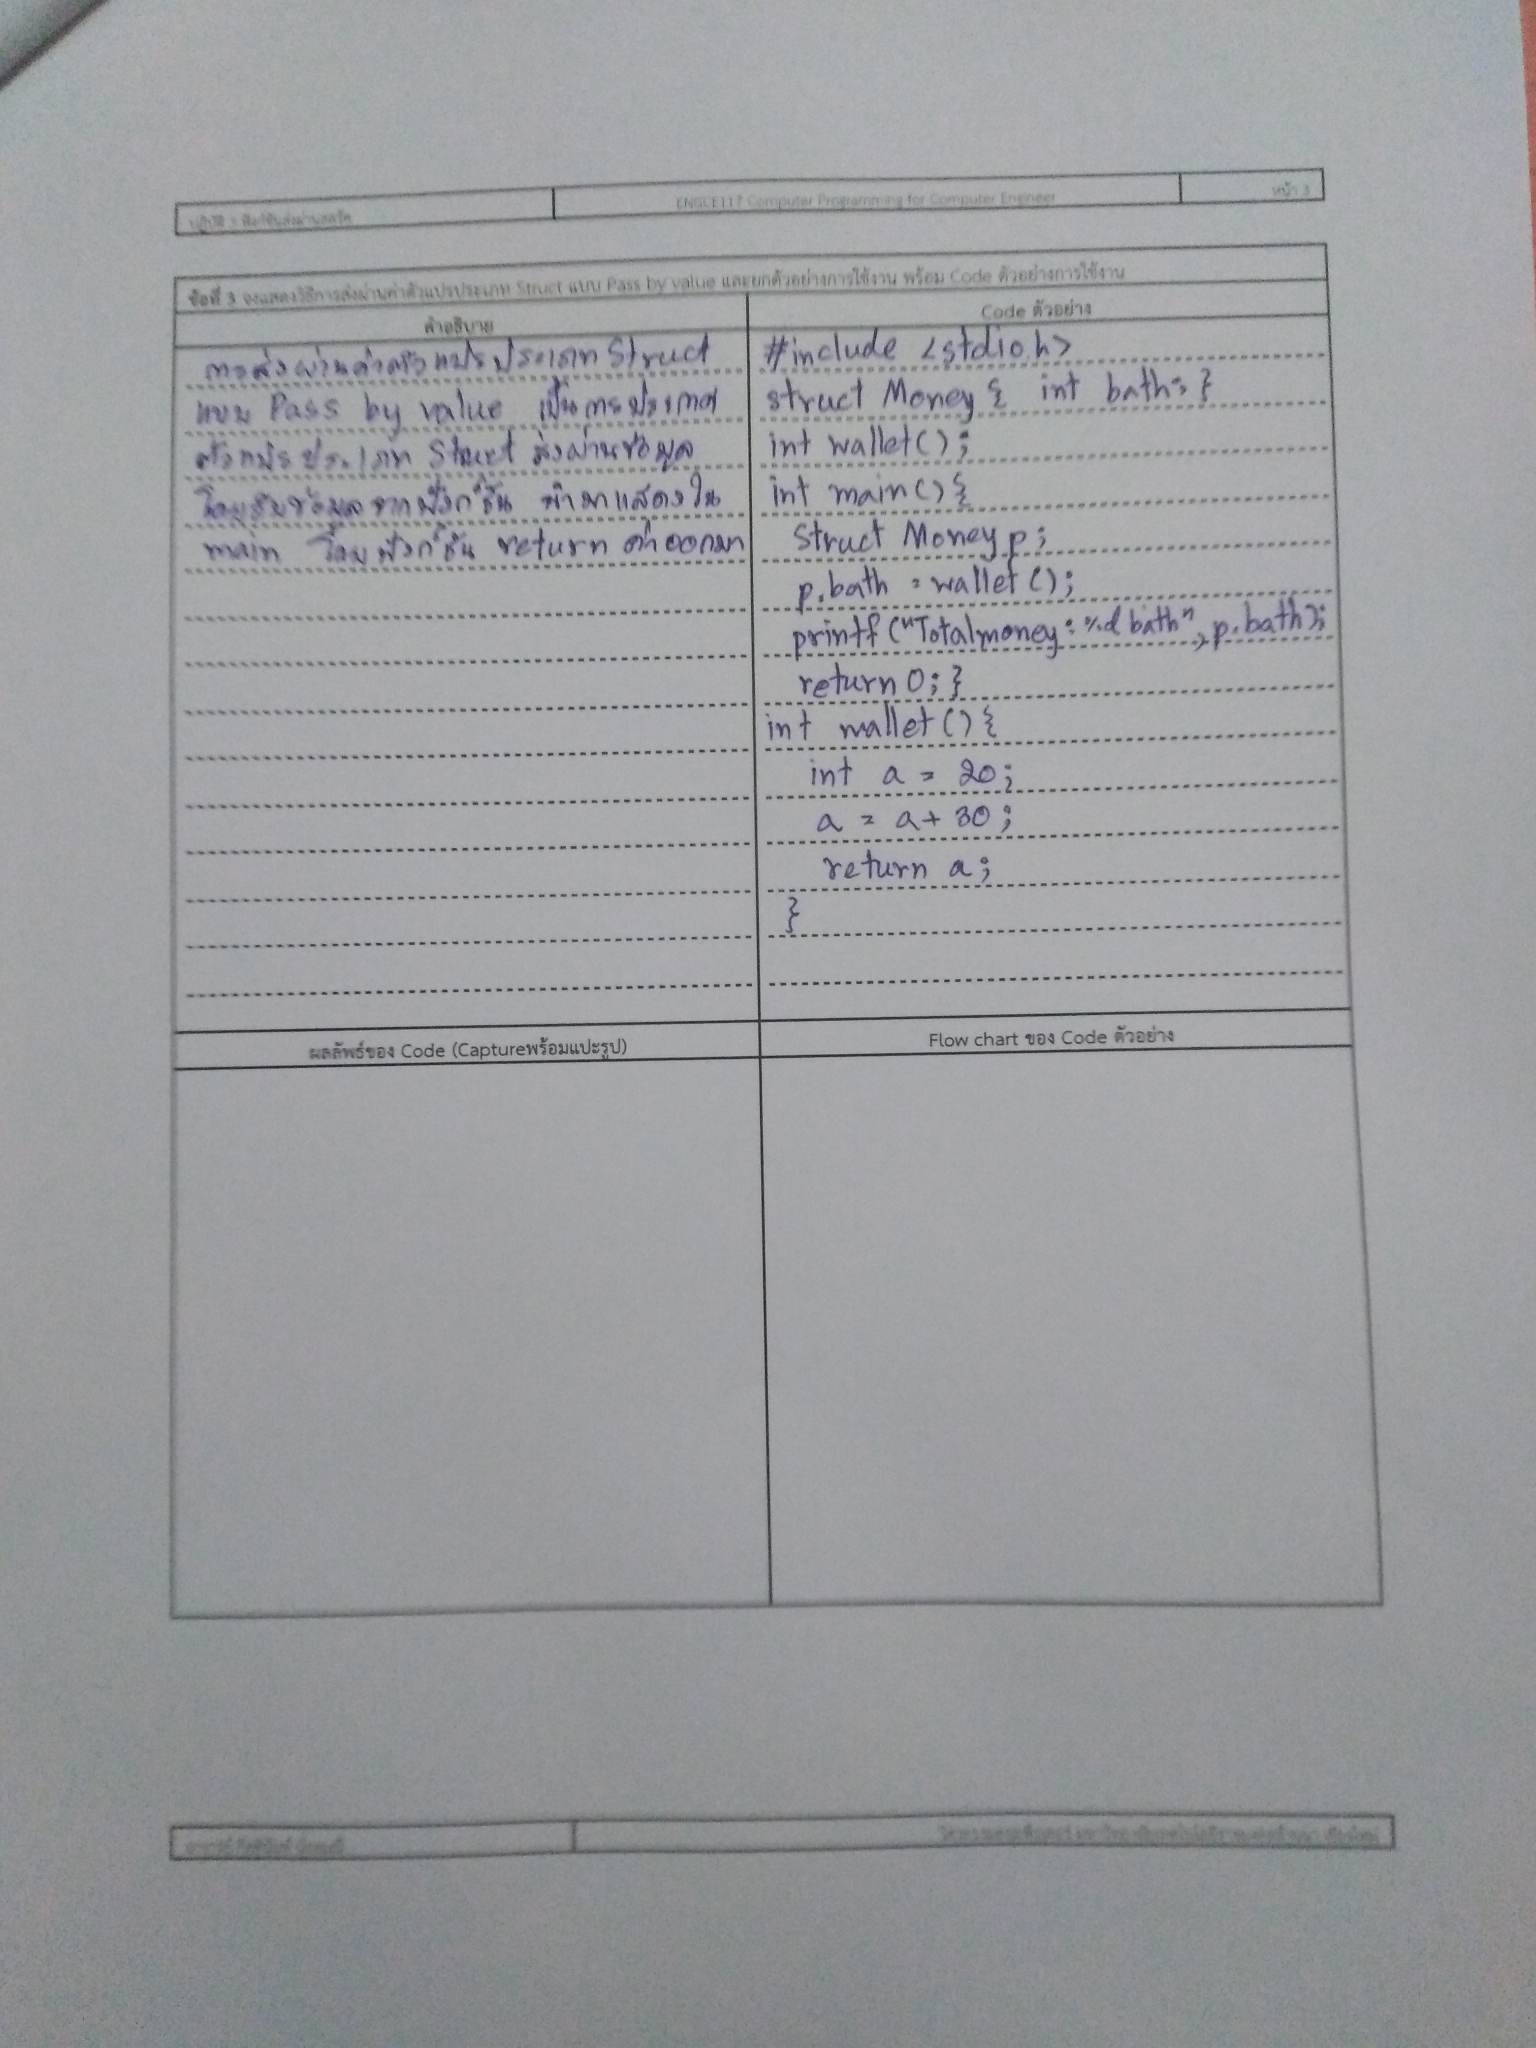 ENGCE117 Computer Programming for Computer Engineer
หน้า 3
ข้อที่ 3 จงแสดงวิธีการส่งผ่านค่าตัวแปรประเภท Struct แบบ Pass by value และยกตัวอย่างการใช้งาน พร้อม Code ตัวอย่างการใช้งาน
คำอธิบาย
การส่งผ่านค่าตัวแปรประเภท Struct
แบบ Pass by value เป็นการประกาศ
ตัวแปรประเภท Struct ส่งผ่านข้อมูล
โดยรับข้อมูลจากฟังก์ชัน นำมาแสดงใน
main โดยฟังก์ชัน return ค่าออกมา
Code ตัวอย่าง
#include <stdio.h>
struct Money{ int bath; }
int wallet();
int main(){
struct Money p;
p.bath = wallet();
printf("Totalmoney: %d bath", p.bath);
return 0; }
int wallet(){
int a = 20;
a = a + 30;
return a;
}
ผลลัพธ์ของ Code (Captureพร้อมแปะรูป)
Flow chart ของ Code ตัวอย่าง